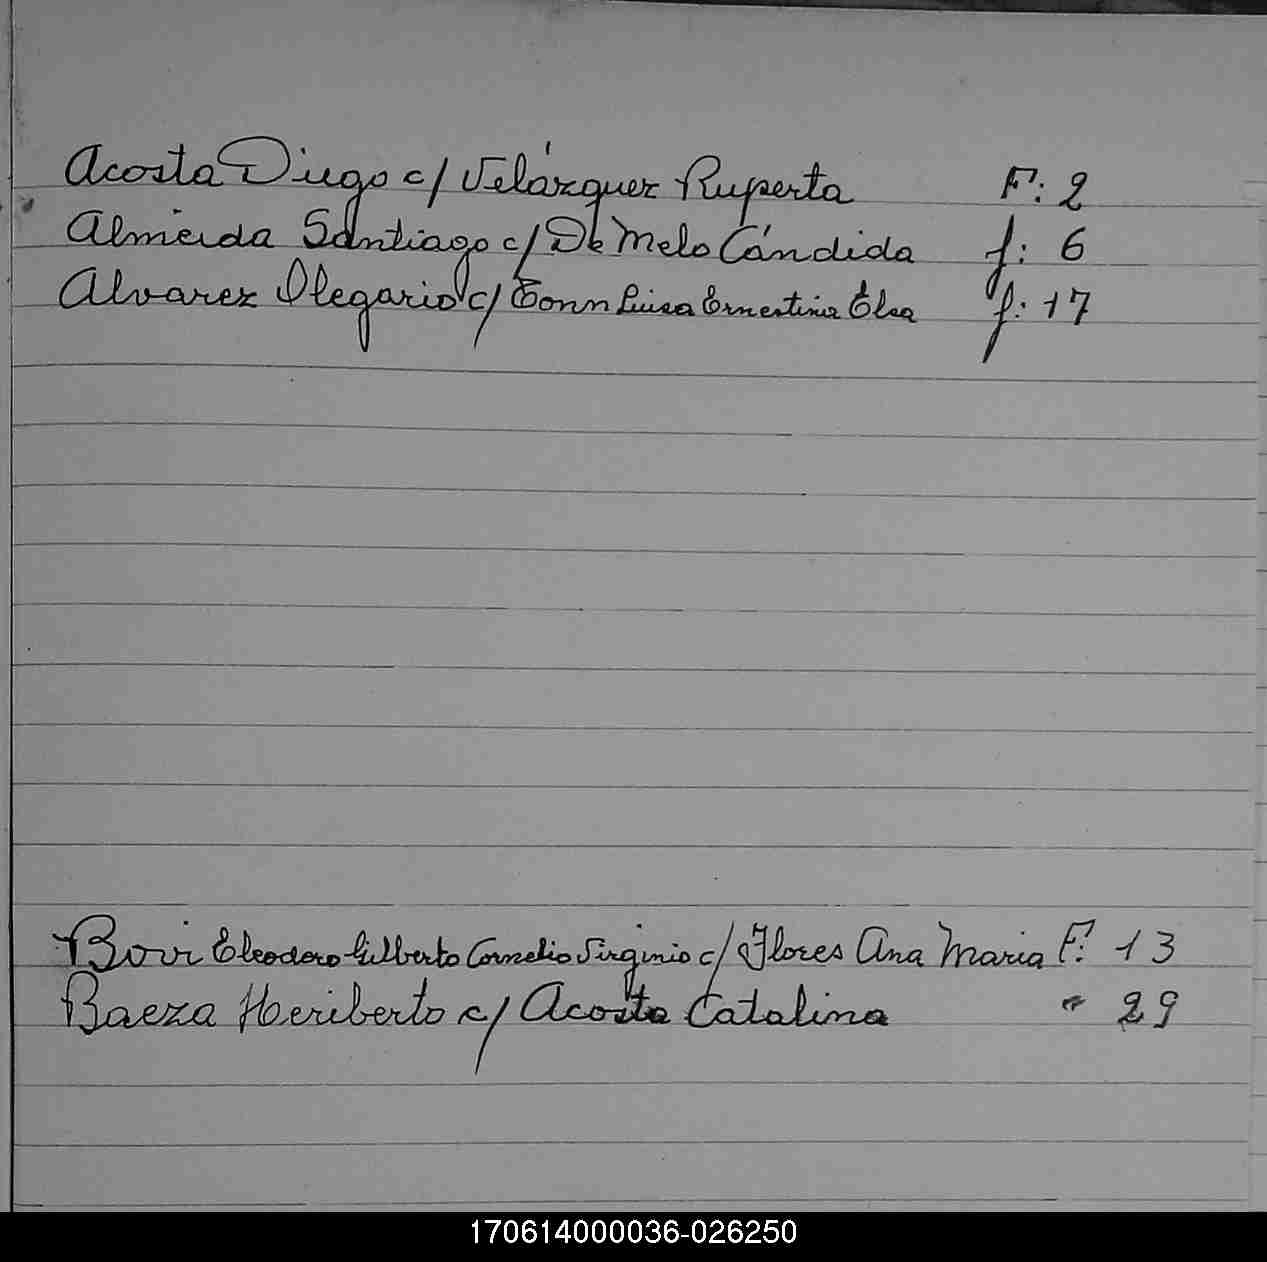 Acosta Diego c/ Velázquez Ruperta F: 2
Almeida Santiago c/ De Melo Cándida f: 6
Alvarez Olegario c/ Tonn Luisa Ernestina Elsa f: 17
Bovi Eleodoro Gilberto Cornelio Virginio c/ Flores Ana Maria F: 13
Baeza Heriberto c/ Acosta Catalina " 29
170614000036-026250